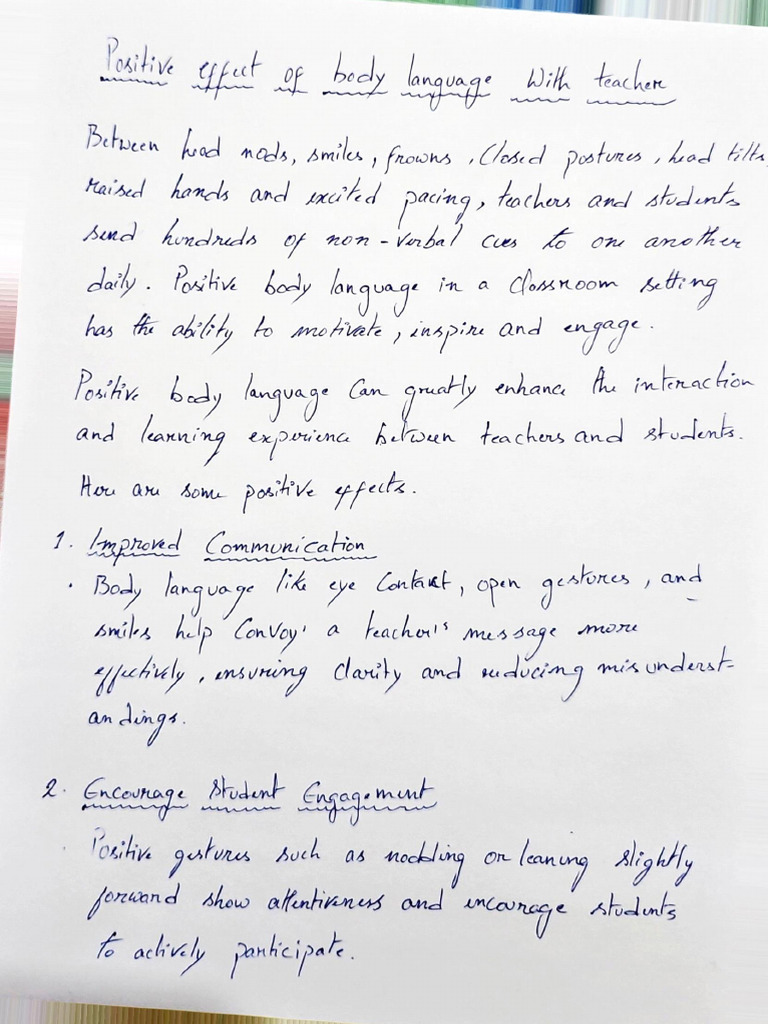 Positive effect of body language With teacher
Between head nods, smiles, frowns, Closed postures, head tilts,
raised hands and excited pacing, teachers and students
send hundreds of non-verbal cues to one another
daily. Positive body language in a Classroom setting
has the ability to motivate, inspire and engage.
Positive body language Can greatly enhance the interaction
and learning experience between teachers and students.
Here are some positive effects.
1. Improved Communication
• Body language like eye Contact, open gestures, and
smiles help Convoy' a teacher's message more
effectively, ensuring Clarity and reducing misunderst-
andings.
2. Encourage Student Engagement
. Positive gestures such as nodding or leaning slightly
forward show attentiveness and encourage students
to actively participate.